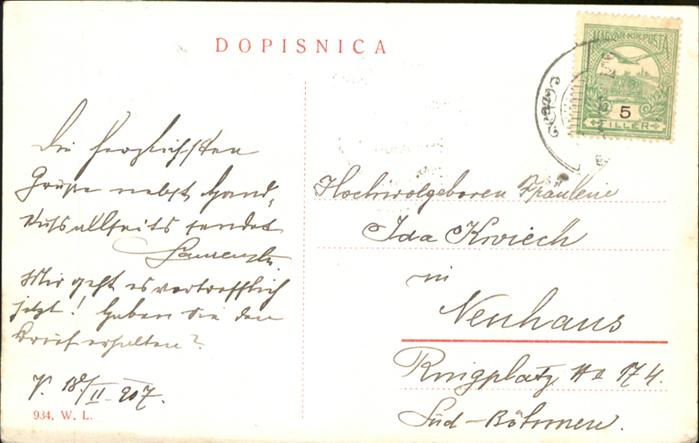 DOPISNICA
MAGYAR KIR. POSTA
5
FILLER
Die herzlichsten
Grüße nebst Hand-
kuß allseits sendet
Mir geht es vortrefflich
jetzt! Haben Sie den
Brief erhalten?
V. 18/II 907.
934. W. L.
Hochwolgeboren Fräulein
Ida Kwiech
in
Neuhaus
Ringplatz № 174.
Süd-Böhmen.